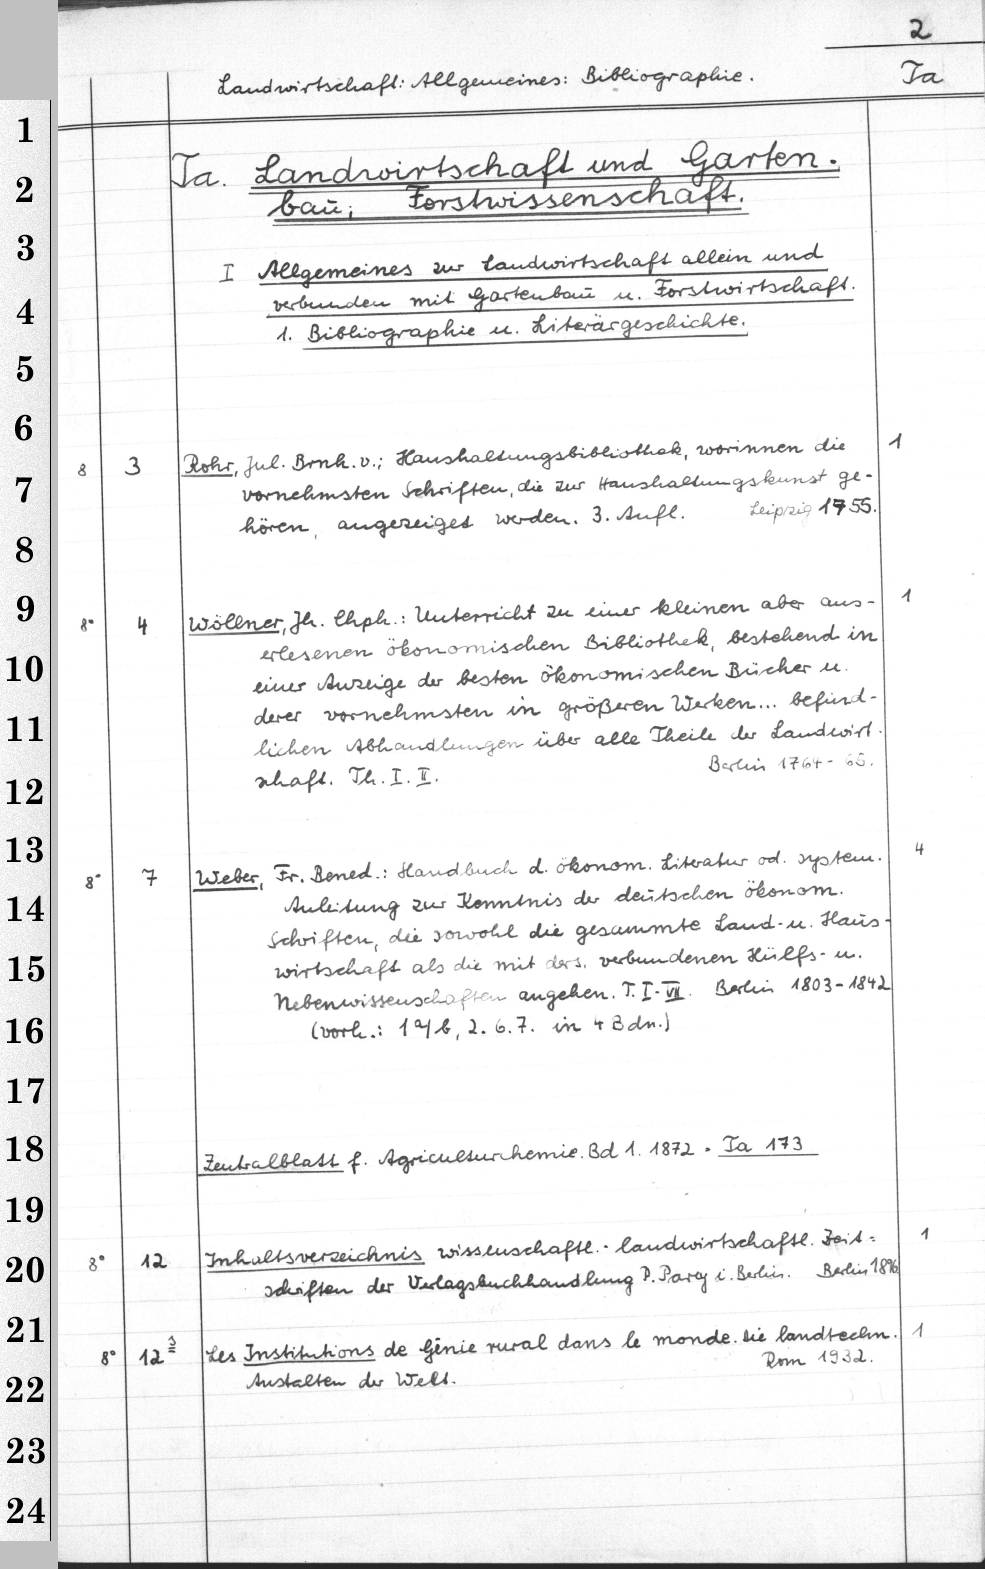 2
Landwirtschaft: Allgemeines: Bibliographie.
Ta
1
2
3
4
5
6
7
8
9
10
11
12
13
14
15
16
17
18
19
20
21
22
23
24
Ta. Landwirtschaft und Garten-
bau; Forstwissenschaft.
I Allgemeines zur Landwirtschaft allein und
verbunden mit Gartenbau u. Forstwirtschaft.
1. Bibliographie u. Literärgeschichte.
8 3 Rohr, Jul. Brnh. v.; Haushaltungsbibliothek, worinnen die 1
vornehmsten Schriften, die zur Haushaltungskunst ge-
hören, angezeiget werden. 3. Aufl. Leipzig 1755.
8° 4 Wöllner, Jh. Chph.: Unterricht zu einer kleinen aber aus- 1
erlesenen ökonomischen Bibliothek, bestehend in
einer Anzeige der besten ökonomischen Bücher u.
derer vornehmsten in größeren Werken... befind-
lichen Abhandlungen über alle Theile der Landwirt-
schaft. Th. I. II. Berlin 1764-65.
8° 7 Weber, Fr. Bened.: Handbuch d. ökonom. Literatur od. system. 4
Anleitung zur Kenntnis der deutschen ökonom.
Schriften, die sowohl die gesammte Land- u. Haus-
wirtschaft als die mit ders. verbundenen Hülfs- u.
Nebenwissenschaften angehen. T. I-VII. Berlin 1803-1842
(vorh.: 1 a/b, 2. 6. 7. in 4 Bdn.)
Zentralblatt f. Agriculturchemie. Bd 1. 1872 = Ta 173
8° 12 Inhaltsverzeichnis wissenschaftl.-landwirtschaftl. Zeit- 1
schriften der Verlagsbuchhandlung P. Parey i. Berlin. Berlin 1896
8° 12 Les Institutions de Génie rural dans le monde. Die landtechn. 1
Anstalten der Welt. Rom 1932.